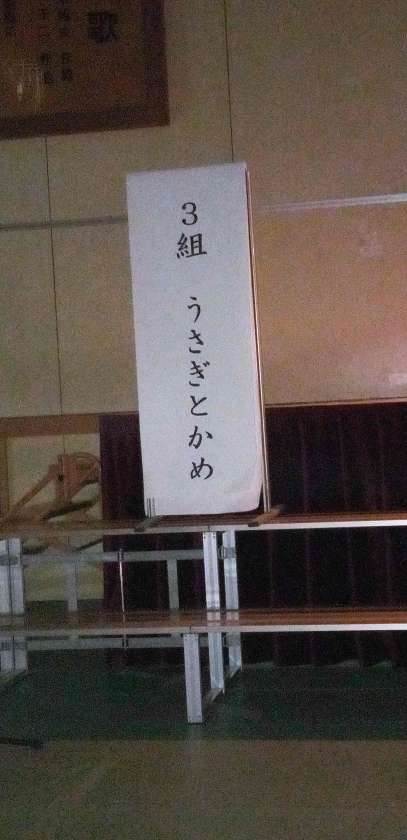 3組 うさぎとかめ
歌